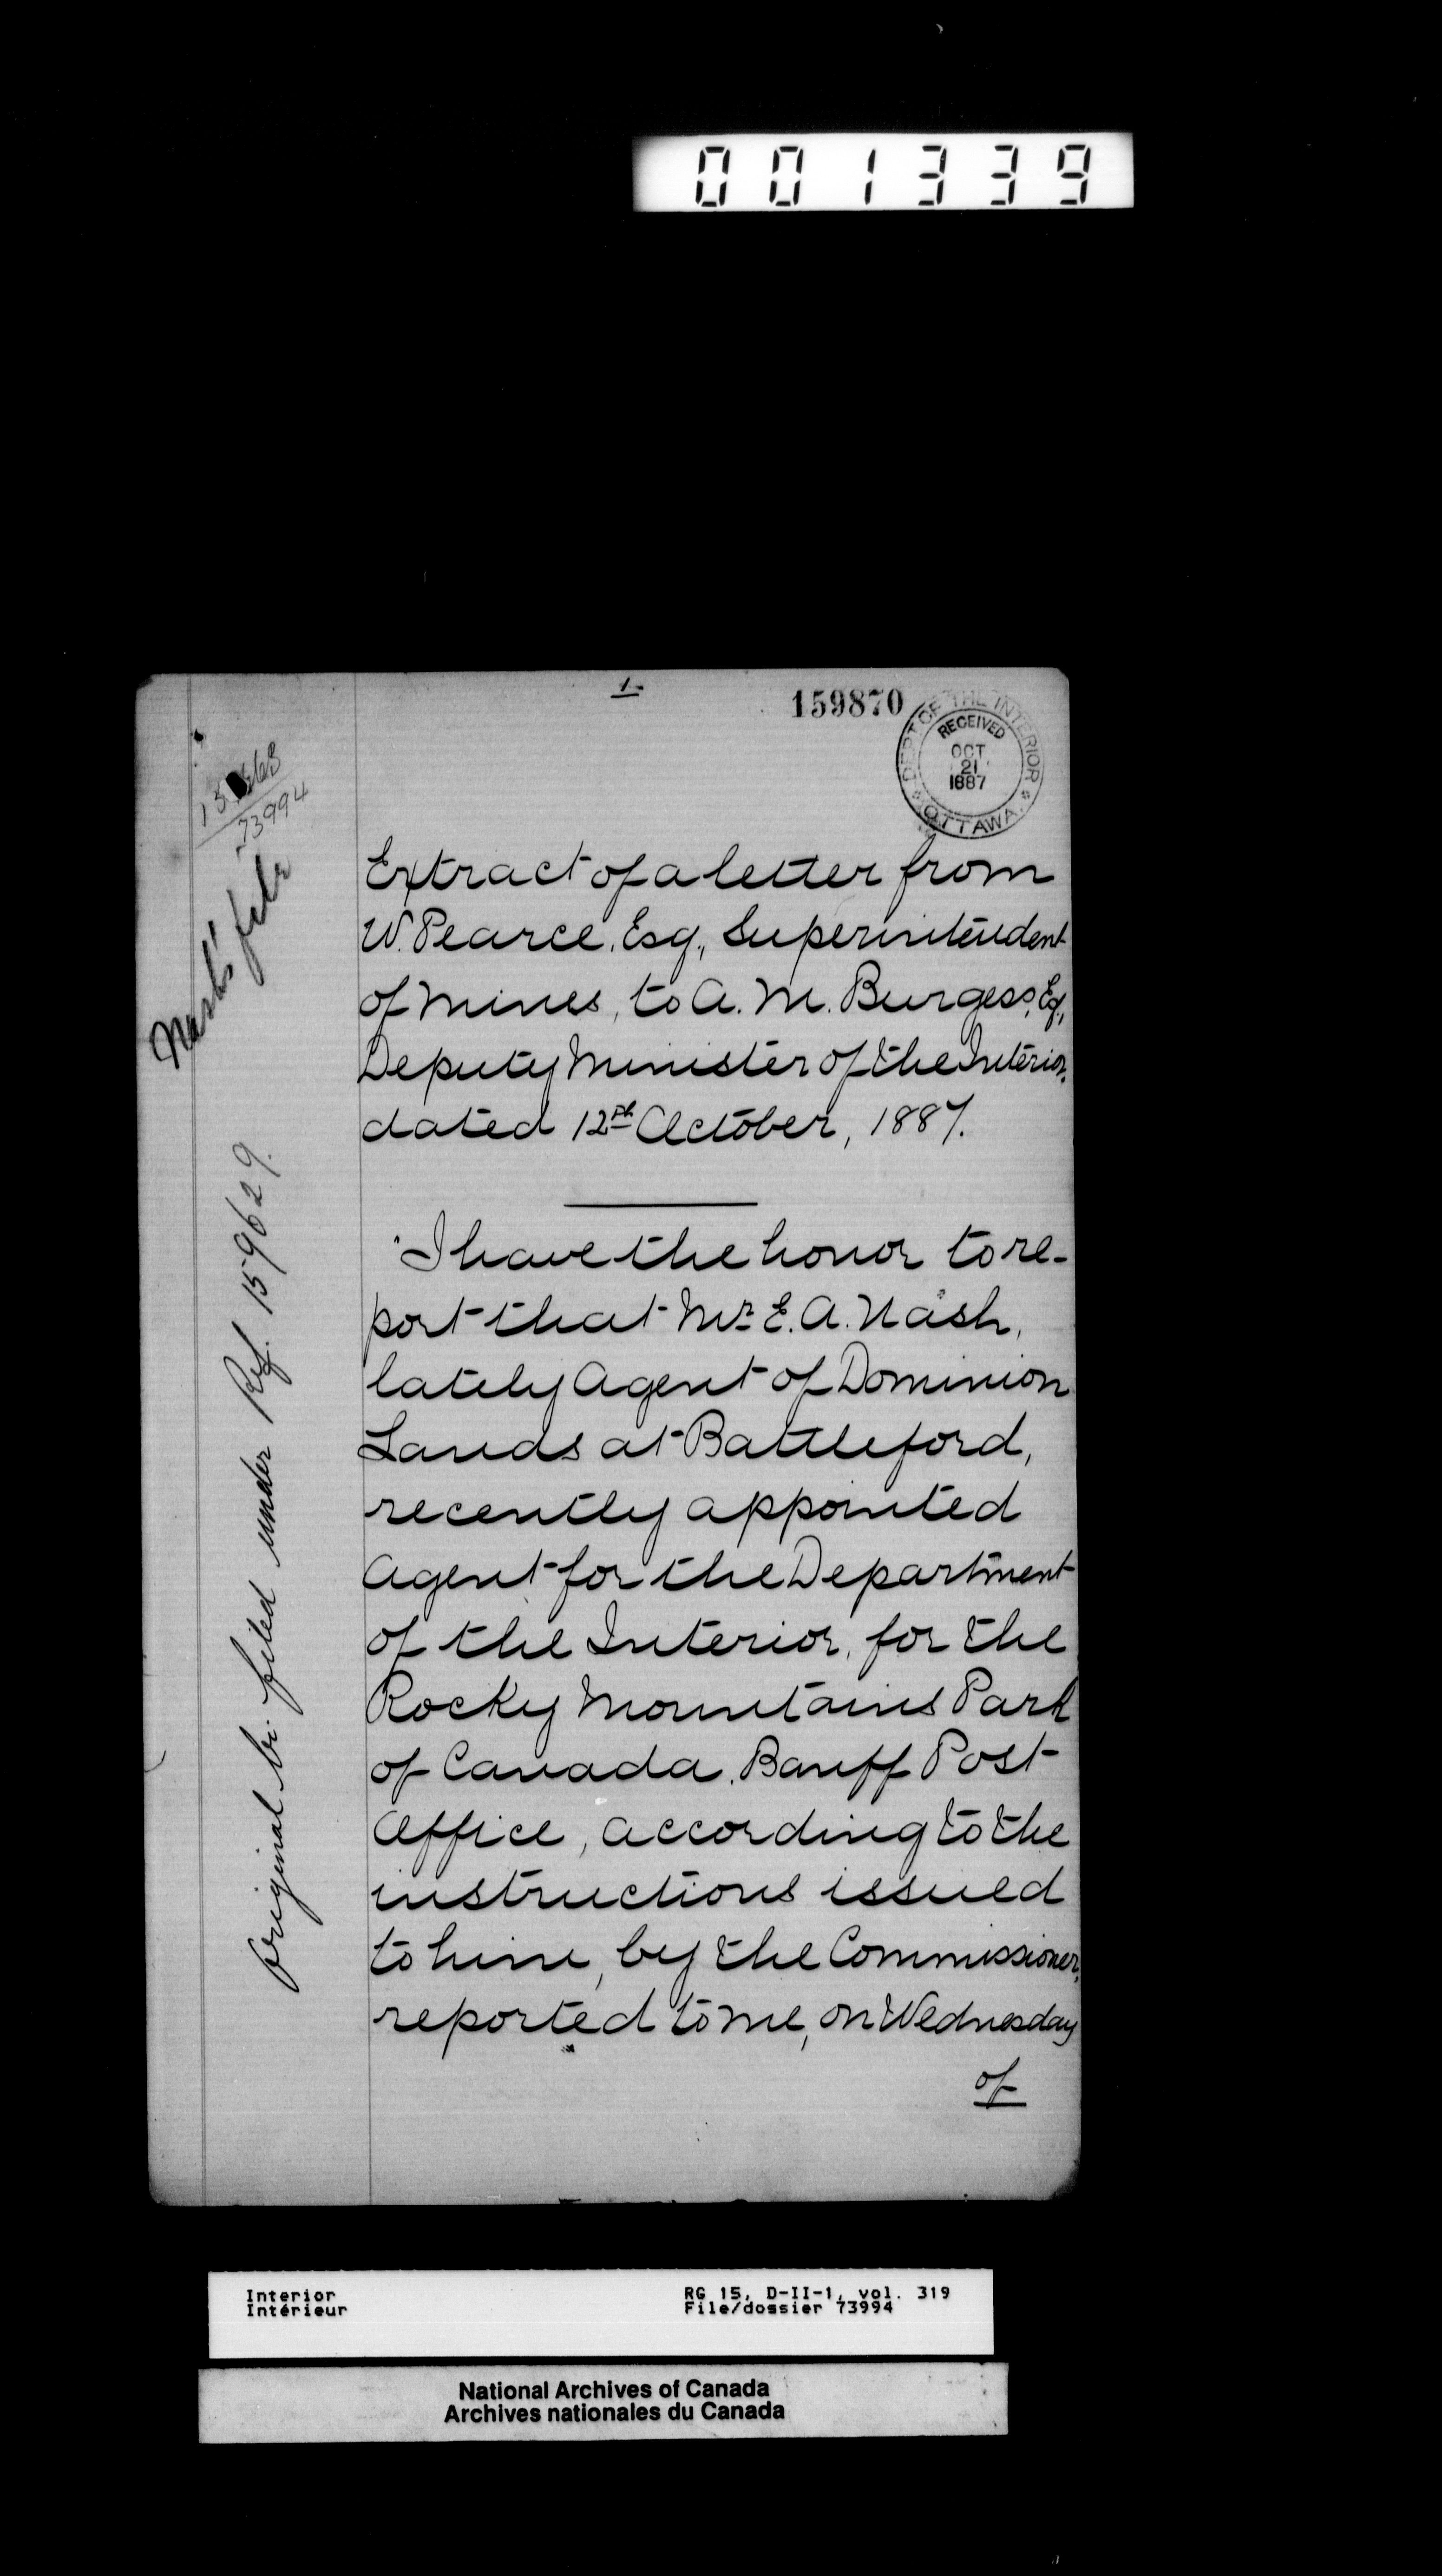 001339
1.
159870
DEPT OF THE INTERIOR
RECEIVED
OCT
21
1887
OTTAWA
73994
Nash's file
Original br. filed under Ref. 159629.
Extract of a letter from
W. Pearce, Esq., Superintendent
of Mines, to A. M. Burgess, Eq.,
Deputy Minister of the Interior,
dated 12th October, 1887.
"I have the honor to re-
port that Mr. E. A. Nash,
lately Agent of Dominion
Lands at Battleford,
recently appointed
Agent for the Department
of the Interior, for the
Rocky Mountains Park
of Canada, Banff Post
Office, according to the
instructions issued
to him, by the Commissioner,
reported to me, on Wednesday
of
Interior
Intérieur
RG 15, D-II-1, vol. 319
File/dossier 73994
National Archives of Canada
Archives nationales du Canada